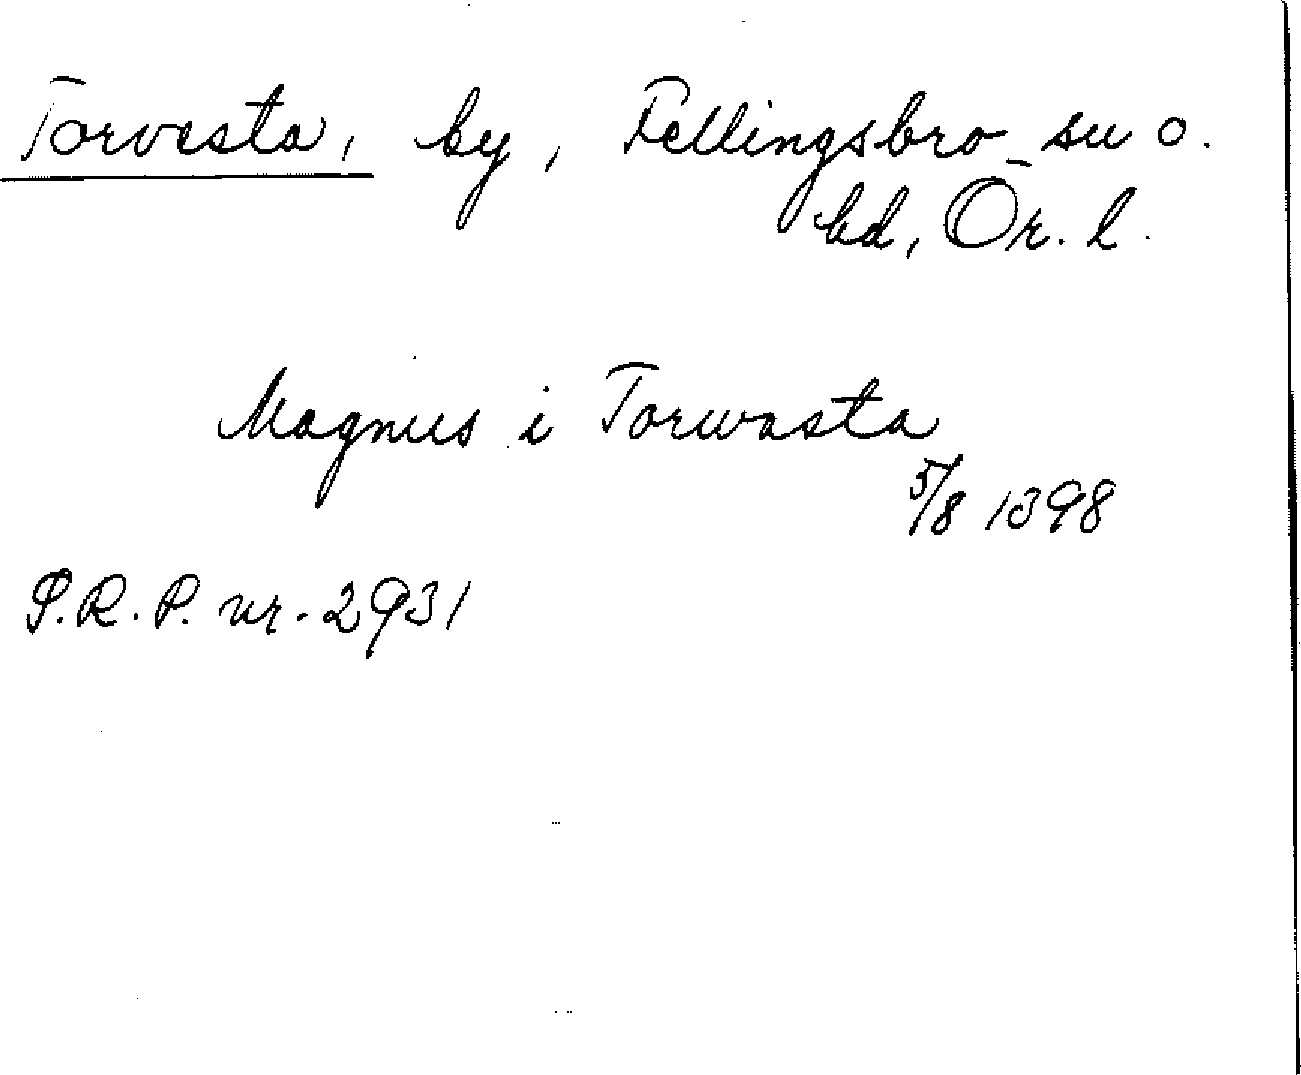 Torvesta, by, Fellingsbro sn o.
hd, Ör. l.
Magnus i Torwasta
5/8 1398
S.R.P. nr. 2931